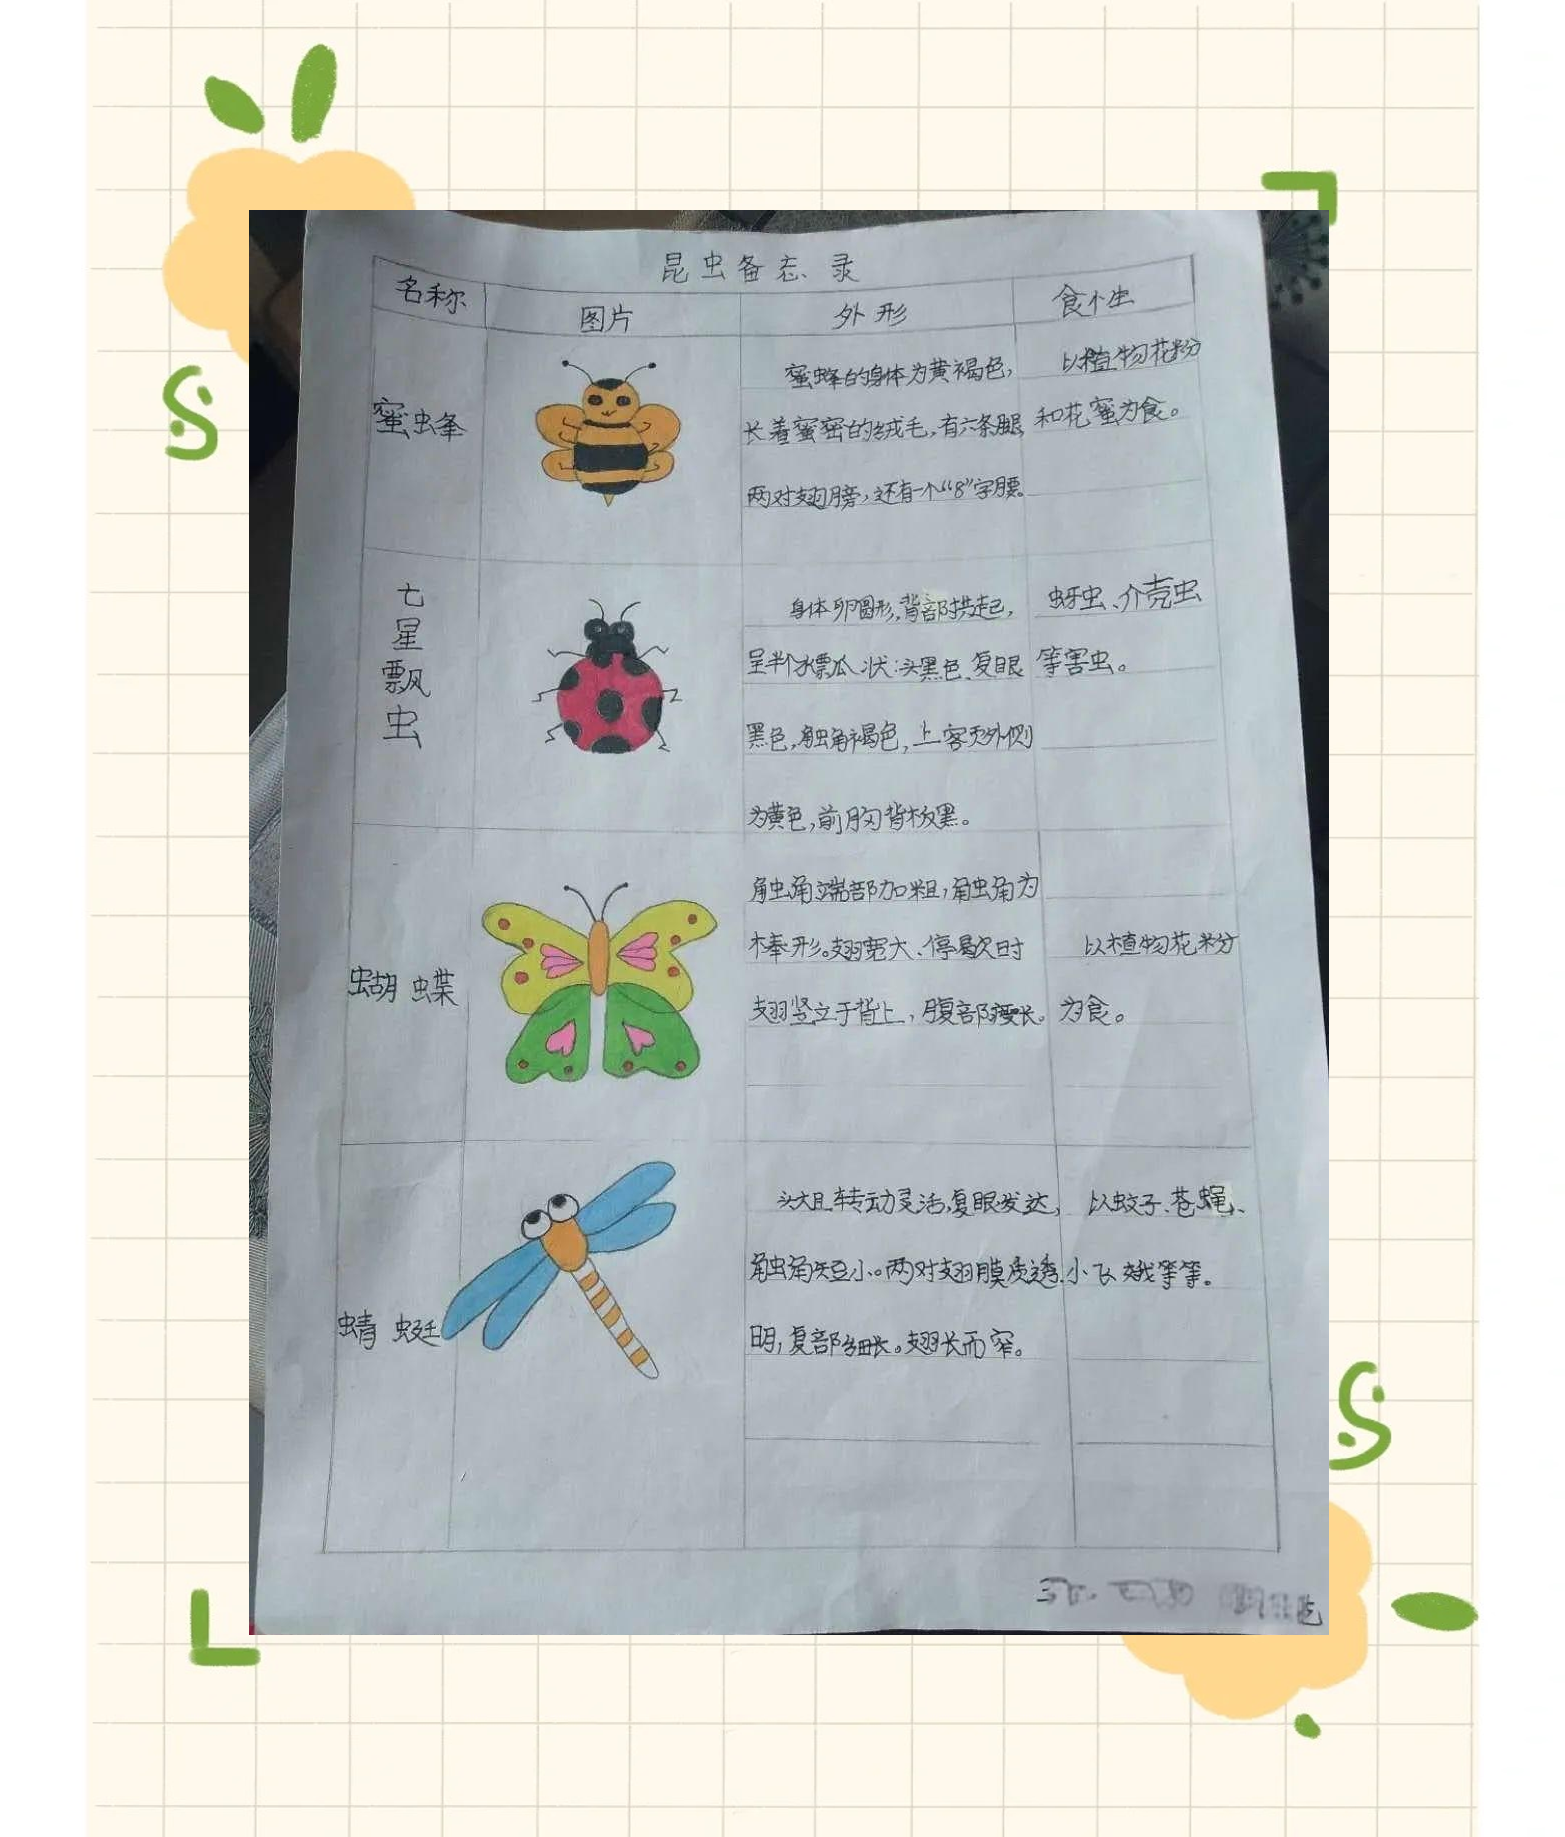 昆虫备忘录
名称 图片 外形 食性
蜜蜂
蜜蜂的身体为黄褐色,
长着蜜密的绒毛,有六条腿
两对翅膀,还有一个“8”字腰。
以植物花粉
和花蜜为食。
七
星
飘
虫
身体卵圆形,背部拱起,
呈半个水瓢瓜状:头黑色、复眼
黑色,触角褐色,上客页外侧
为黄色,前胸背板黑。
蚜虫、介壳虫
等害虫。
蝴蝶
触角端部加粗,触角为
棒形。翅宽大、停歇时
翅竖立于背上,腹部瘦长。
以植物花粉
为食。
蜻蜓
头大且转动灵活,复眼发达,
触角短小。两对翅膜质透
明,复部细长。翅长而窄。
以蚊子、苍蝇、
小飞蛾等等。